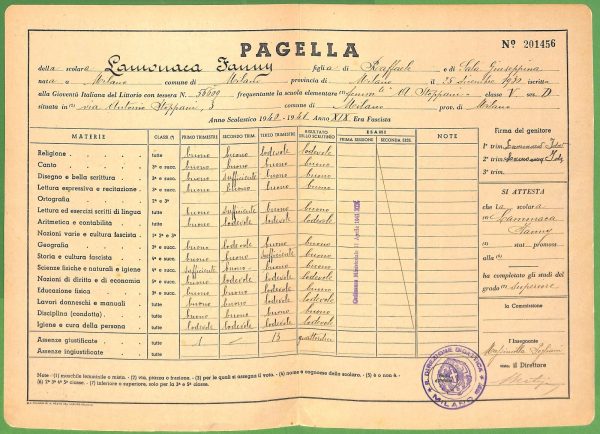 PAGELLA
Nº 201456
della scolara Lamonaca Fanny figlia di Raffaele e di Sala Giuseppina
nata a Milano comune di Milano provincia di Milano il 25 dicembre 1930 iscritta
alla Gioventù Italiana del Littorio con tessera N. frequentante la scuola elementare A. Stoppani classe V sez. D
situata in via Antonio Stoppani, 3 comune di Milano prov. di Milano
Anno Scolastico 1940-1941 Anno XIX Era Fascista
MATERIE CLASSE (*) PRIMO TRIMESTRE SECONDO TRIM. TERZO TRIMESTRE RISULTATO DELLO SCRUTINIO ESAMI PRIMA SESSIONE SECONDA SESS. NOTE
Religione tutte buono buono lodevole lodevole
Canto 3ª e succ. buono buono buono buono
Disegno e bella scrittura 2ª e succ. buono sufficiente buono buono
Lettura espressiva e recitazione 3ª e succ. buono buono buono buono
Ortografia 2ª e 3ª
Lettura ed esercizi scritti di lingua tutte buono sufficiente buono buono
Aritmetica e contabilità tutte buono lodevole lodevole lodevole
Nozioni varie e cultura fascista 1ª 2ª 3ª
Geografia 3ª e succ. buono lodevole buono buono
Storia e cultura fascista 4ª e succ. buono lodevole sufficiente buono
Scienze fisiche naturali e igiene 4ª e succ. sufficiente buono buono buono
Nozioni di diritto e di economia 5ª e succ. buono lodevole buono buono
Educazione fisica tutte buono lodevole buono
Lavori donneschi e manuali tutte buono lodevole lodevole lodevole
Disciplina (condotta) tutte buono lodevole lodevole lodevole
Igiene e cura della persona tutte lodevole lodevole lodevole lodevole
Assenze giustificate tutte 1 / 13 quattordici
Assenze ingiustificate tutte
Ordinanza Ministeriale Aprile 1941 XIX
Firma del genitore
1º trim. Lamonaca
2º trim.
3º trim.
SI ATTESTA
che la scolara
Lamonaca
Fanny
stat promoss
alla
ha completato gli studi del
grado superiore
la Commissione
l'Insegnante
visto, il Direttore
R. DIREZIONE DIDATTICA
MILANO
Note - (1) maschile femminile o mista. - (2) via, piazza o frazione. - (3) per le quali si assegna il voto. - (4) nome e cognome dello scolaro. - (5) è o non è.
(6) 2ª 3ª 4ª 5ª classe. - (7) inferiore o superiore, solo per la 3ª e 5ª classe.